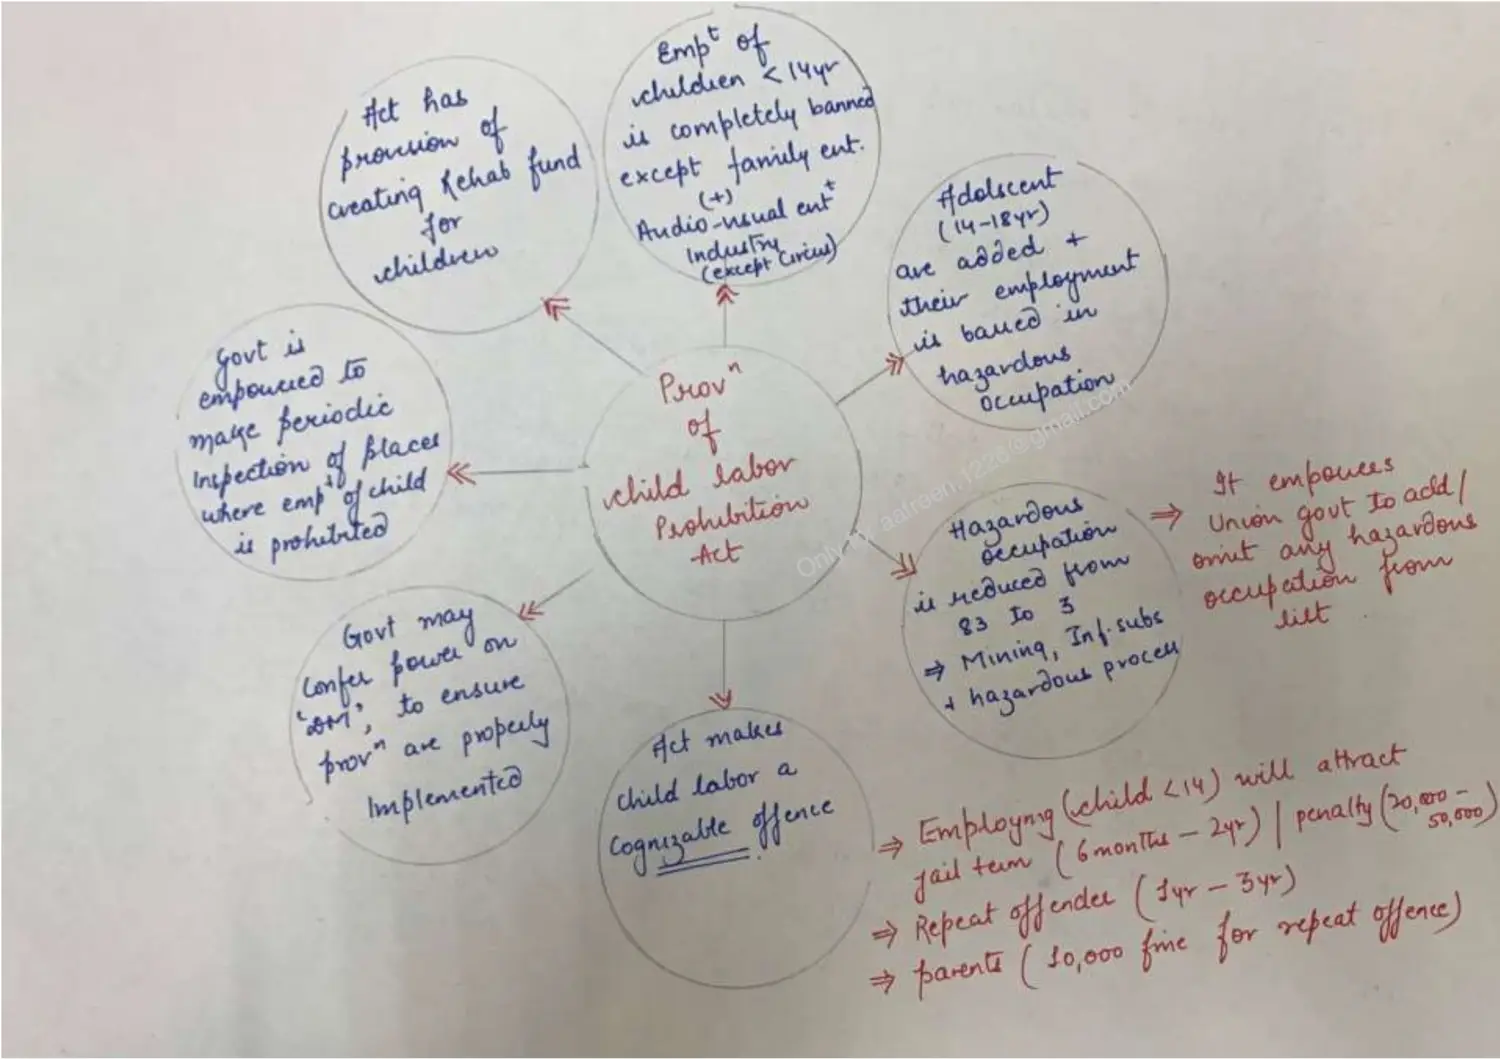 Prov^n
of
child labor
Prohibition
Act
Emp^t of
children < 14yr
is completely banned
except family ent.
(+)
Audio-visual ent^t
Industry
(except Circus)
Adolscent
(14-18yr)
are added +
their employment
is banned in
hazardous
occupation
Hazardous
occupation
is reduced from
83 to 3
⇒ Mining, Inf. subs
+ hazardous process
⇒ It empowers
Union govt to add/
omit any hazardous
occupation from
list
Act makes
child labor a
Cognizable offence
⇒ Employing (child <14) will attract
jail term (6 months - 2yr) / penalty (20,000 -
50,000)
⇒ Repeat offender (1yr - 3yr)
⇒ parents (10,000 fine for repeat offence)
Govt may
confer power on
'DM', to ensure
prov^n are properly
Implemented
Govt is
empowered to
make periodic
Inspection of places
where emp^t of child
is prohibited
Act has
provision of
creating Rehab fund
for
children